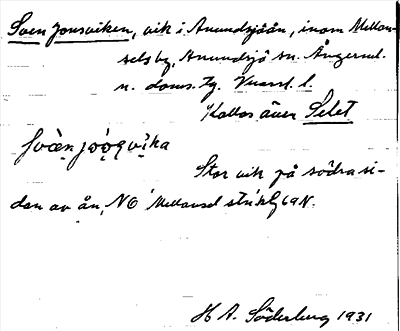 Sven Jonsviken, vik i Anundsjöån, inom Mellan-
selsby, Anundsjö sn. Ångerml.
n. doms. tg. Vnorrl. l.
Kallas även Selet
Stor vik på södra si-
dan av ån, NO Mellansel
H A. Söderberg 1931